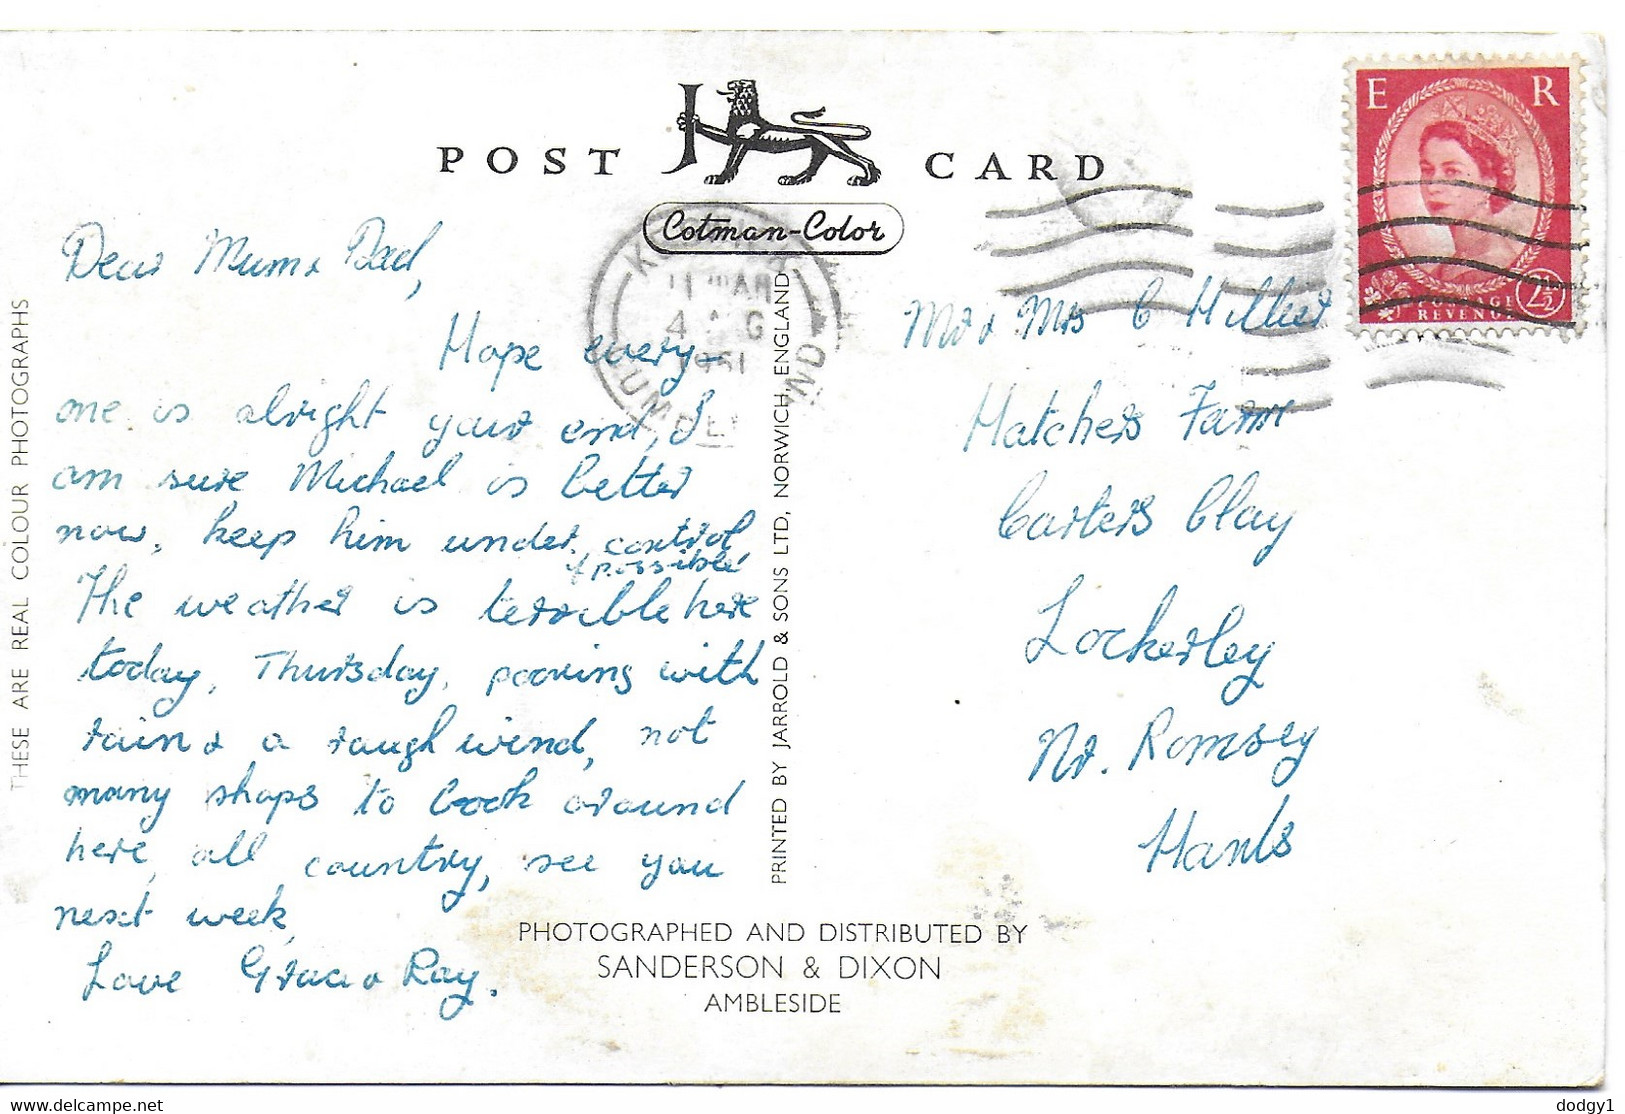 POST CARD
Cotman-Color
E R
POSTAGE
REVENUE
2½
11 AM
4 AG
CUMBERLAND
Dear Mum & Dad,
Hope every-
one is alright your end, I
am sure Michael is better
now, keep him under control
if possible
The weather is terrible here
today, Thursday, pooring with
rain & a rough wind, not
many shops to look around
here, all country, see you
next week,
Love Grace & Ray.
Mr & Mrs C Hillier
Hatchers Farm
Carters Clay
Lockerley
Nr. Romsey
Hants
THESE ARE REAL COLOUR PHOTOGRAPHS
PRINTED BY JARROLD & SONS LTD, NORWICH, ENGLAND
PHOTOGRAPHED AND DISTRIBUTED BY
SANDERSON & DIXON
AMBLESIDE
delcampe.net
dodgy1